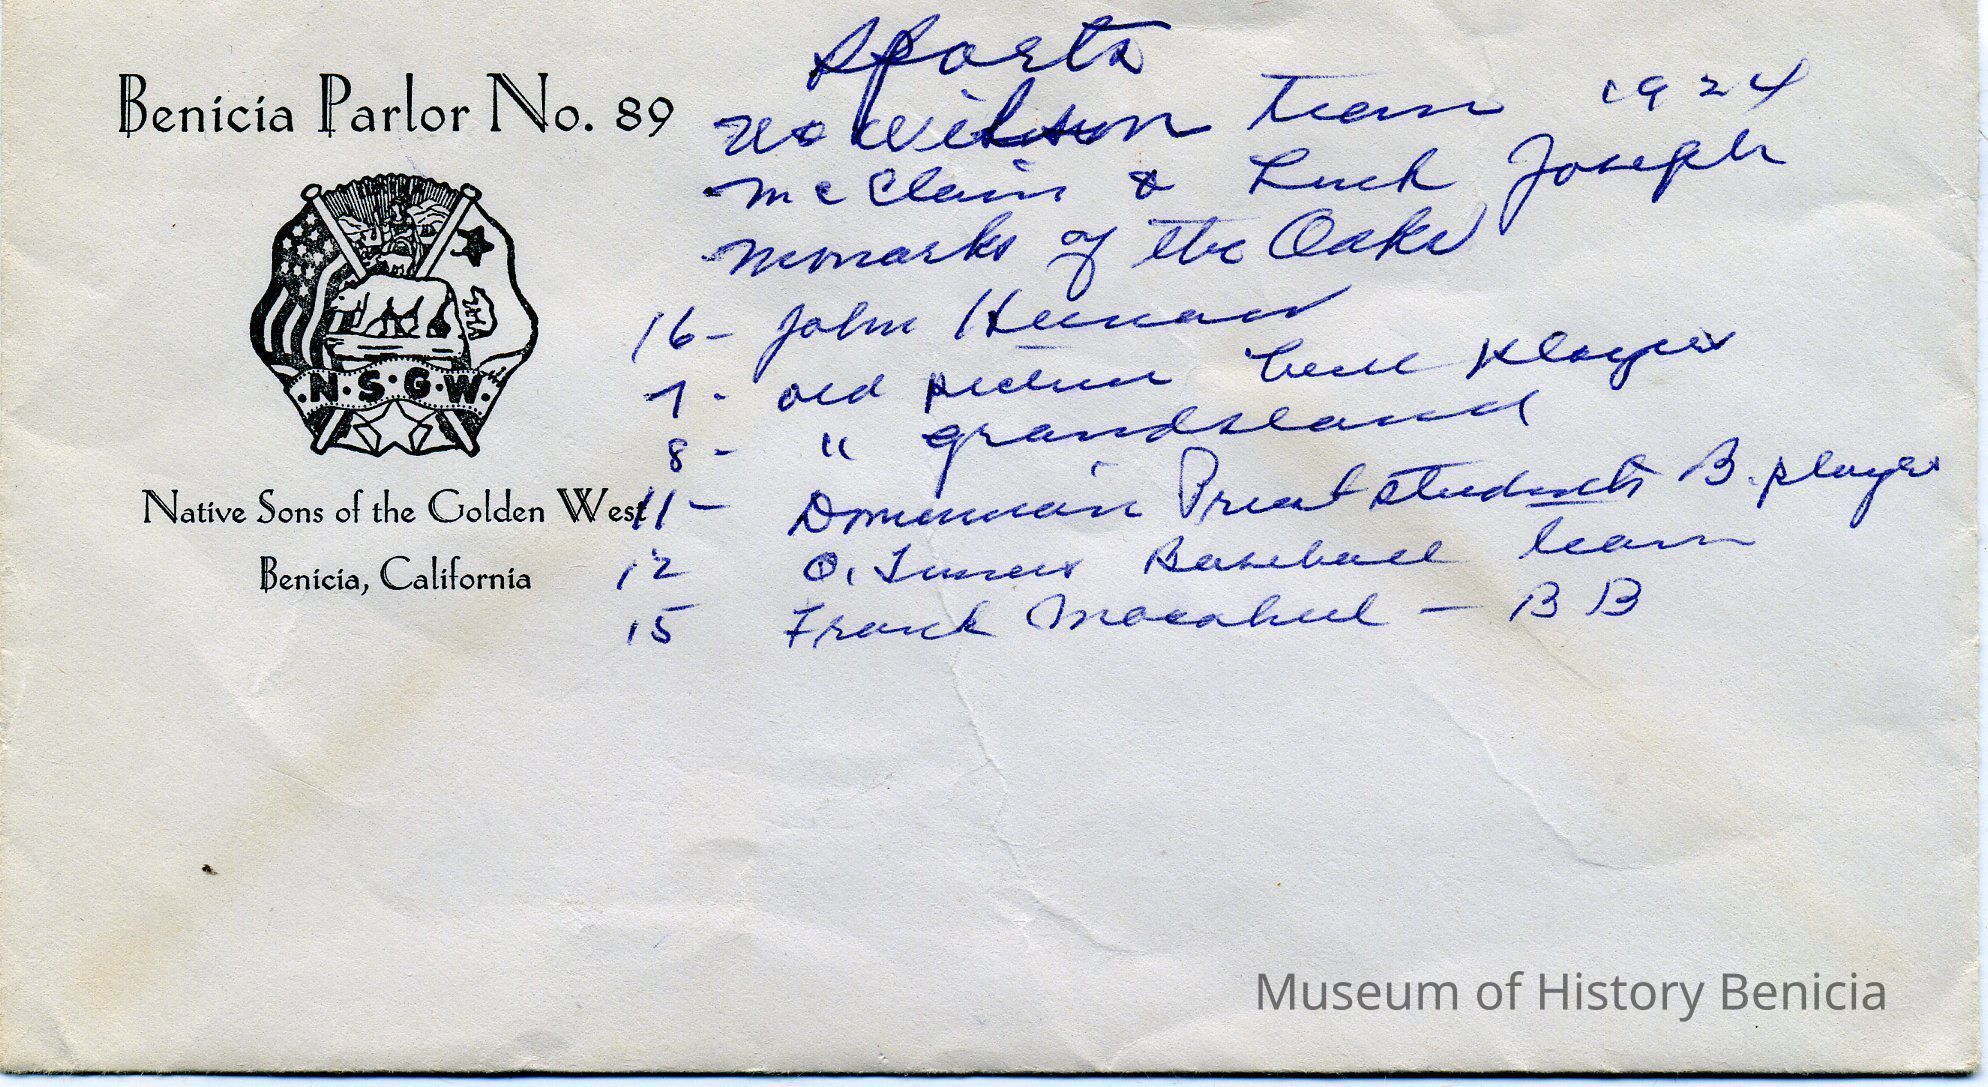 Benicia Parlor No. 89
N·S·G·W.
Native Sons of the Golden West
Benicia, California
Sports
Wilson Team 1924
McClain & Luck Joseph
Monarks of the Oaks
16- John Heenan
7- old picture ball players
8- " grandstand
11- Dominican Priest students B. player
12 O. Timers Baseball team
15 Frank - BB
Museum of History Benicia